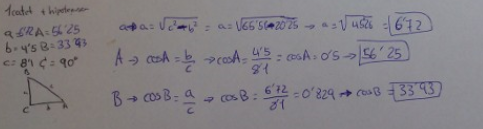 1 catet + hipotenusa
a = A = 56'25
b = 4'5 B = 33'93
c = 8'1 C = 90º
B
A
a → a = √c² - b² = a = √65'61 - 20'25 → a = √45'36 → 6'72
A → cosA = b/c → cosA = 4'5/8'1 = cosA = 0'5 → 56'25
B → cosB = a/c → cosB = 6'72/8'1 = 0'829 → cosB = 33'93